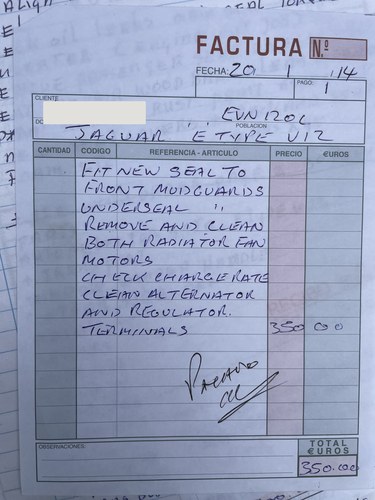 FACTURA N.º
FECHA: 20 1 14
PAGO: 1
CLIENTE
EVN 120L
POBLACIÓN
JAGUAR "E TYPE V12
CANTIDAD CODIGO REFERENCIA - ARTICULO PRECIO €UROS
FIT NEW SEAL TO
FRONT MUDGUARDS
UNDERSEAL "
REMOVE AND CLEAN
BOTH RADIATOR FAN
MOTORS
CHECK CHARGE RATE
CLEAN ALTERNATOR
AND REGULATOR.
TERMINALS 350 000
PAGADO
OBSERVACIONES:
TOTAL €UROS
350.000